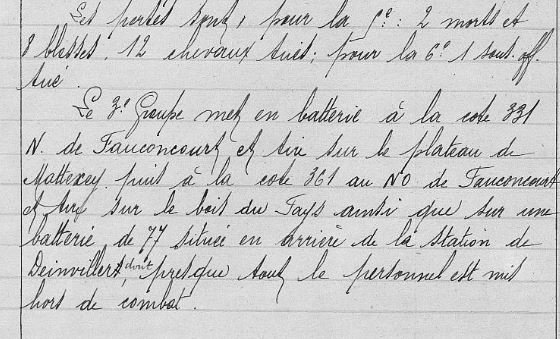 Les pertes sont, pour la 5e : 2 morts et
8 blessés. 12 chevaux tués; pour la 6e 1 sous. off.
tué.
Le 3e Groupe met en batterie à la cote 331
N. de Fauconcourt et tire sur le plateau de
Mattexey puis à la cote 361 au NO de Fauconcourt
et tire sur le bois du Fays ainsi que sur une
batterie de 77 située en arrière de la station de
Deinvillers dont presque tout le personnel est mis
hors de combat.